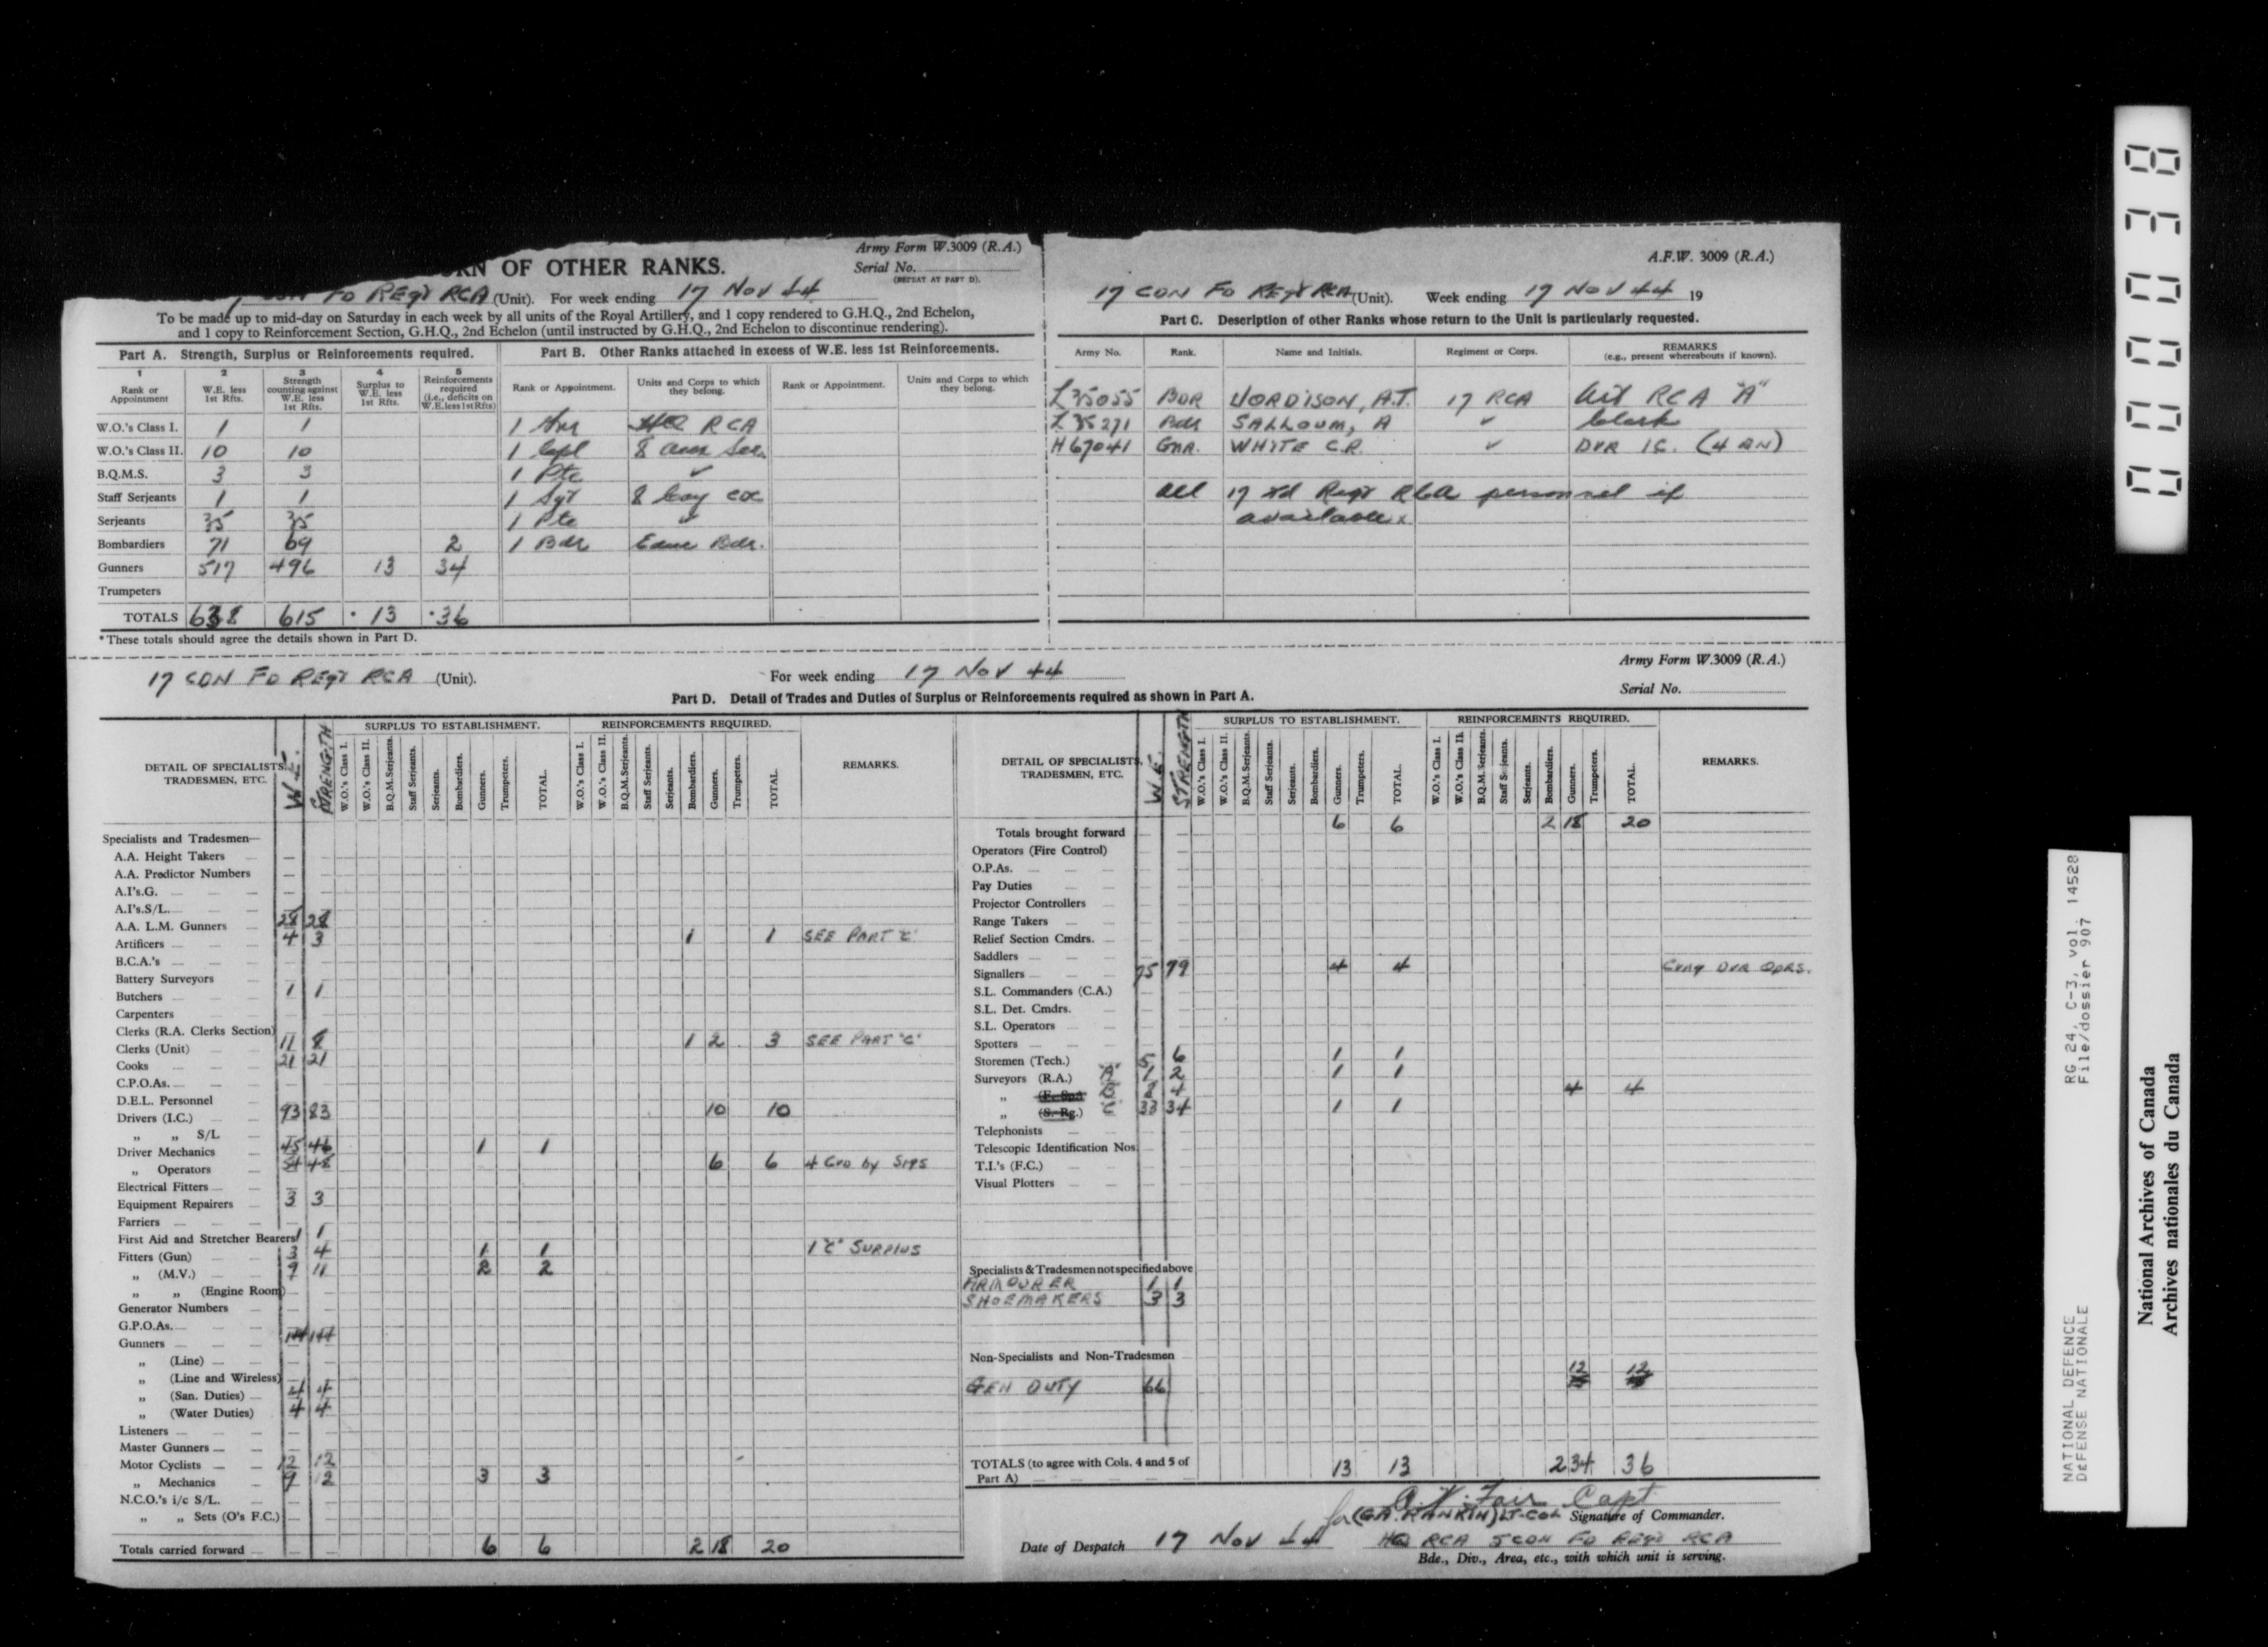 Army Form W.3009 (R.A.)
RN OF OTHER RANKS.
Serial No.
(REPEAT AT PART D).
CDN FD REGT RCA (Unit). For week ending 17 NOV 44
To be made up to mid-day on Saturday in each week by all units of the Royal Artillery, and 1 copy rendered to G.H.Q., 2nd Echelon,
and 1 copy to Reinforcement Section, G.H.Q., 2nd Echelon (until instructed by G.H.Q., 2nd Echelon to discontinue rendering).
Part A. Strength, Surplus or Reinforcements required.
1 2 3 4 5
Rank or Appointment W.E. less 1st Rfts. Strength counting against W.E. less 1st Rfts. Surplus to W.E. less 1st Rfts. Reinforcements required (i.e., deficits on W.E. less 1st Rfts)
W.O.'s Class I. 1 1
W.O.'s Class II. 10 10
B.Q.M.S. 3 3
Staff Serjeants 1 1
Serjeants 35 35
Bombardiers 71 69 2
Gunners 517 496 13 34
Trumpeters
TOTALS 638 615 * 13 * 36
*These totals should agree the details shown in Part D.
Part B. Other Ranks attached in excess of W.E. less 1st Reinforcements.
Rank or Appointment. Units and Corps to which they belong. Rank or Appointment. Units and Corps to which they belong.
1 HQ RCA
1 Cpl 8
1 Pte ✓
1 Sgt 8 Coy
1 Pte ✓
1 Bdr Bdr.
A.F.W. 3009 (R.A.)
17 CDN FD REGT RCA (Unit). Week ending 17 NOV 44 19
Part C. Description of other Ranks whose return to the Unit is particularly requested.
Army No. Rank. Name and Initials. Regiment or Corps. REMARKS (e.g., present whereabouts if known).
L35055 BDR A.T. 17 RCA RCA "A"
L35271 Bdr SALLOUM, A ✓ clerk
H67041 GNR. WHITE C.R. ✓ DVR IC. (4 BN)
all 17 Regt RCA personnel if
available
17 CDN FD REGT RCA (Unit). For week ending 17 NOV 44
Army Form W.3009 (R.A.)
Serial No.
Part D. Detail of Trades and Duties of Surplus or Reinforcements required as shown in Part A.
DETAIL OF SPECIALISTS, TRADESMEN, ETC. W.E. STRENGTH SURPLUS TO ESTABLISHMENT. REINFORCEMENTS REQUIRED. REMARKS.
W.O.'s Class I. W.O.'s Class II. B.Q.M.Serjeants. Staff Serjeants. Serjeants. Bombardiers. Gunners. Trumpeters. TOTAL. W.O.'s Class I. W.O.'s Class II. B.Q.M.Serjeants. Staff Serjeants. Serjeants. Bombardiers. Gunners. Trumpeters. TOTAL.
Specialists and Tradesmen—
A.A. Height Takers
A.A. Predictor Numbers
A.I's.G.
A.I's.S/L.
A.A. L.M. Gunners 28 28
Artificers 4 3 1 1 SEE PART "C"
B.C.A.'s
Battery Surveyors
Butchers 1 1
Carpenters
Clerks (R.A. Clerks Section)
Clerks (Unit) 11 8 1 2 3 SEE PART "C"
Cooks 21 21
C.P.O.As.
D.E.L. Personnel
Drivers (I.C.) 93 83 10 10
„ „ S/L
Driver Mechanics 45 46 1 1
„ Operators 54 48 6 6 4 Cvd by SIGS
Electrical Fitters
Equipment Repairers 3 3
Farriers
First Aid and Stretcher Bearers 1 1
Fitters (Gun) 3 4 1 1 1 "C" SURPLUS
„ (M.V.) 9 11 2 2
„ „ (Engine Room)
Generator Numbers
G.P.O.As.
Gunners 144 144
„ (Line)
„ (Line and Wireless)
„ (San. Duties) 4 4
„ (Water Duties) 4 4
Listeners
Master Gunners
Motor Cyclists 12 12
„ Mechanics 9 12 3 3
N.C.O.'s i/c S/L.
„ „ Sets (O's F.C.)
Totals carried forward 6 6 2 18 20
DETAIL OF SPECIALISTS, TRADESMEN, ETC. W.E. STRENGTH SURPLUS TO ESTABLISHMENT. REINFORCEMENTS REQUIRED. REMARKS.
W.O.'s Class I. W.O.'s Class II. B.Q.M.Serjeants. Staff Serjeants. Serjeants. Bombardiers. Gunners. Trumpeters. TOTAL. W.O.'s Class I. W.O.'s Class II. B.Q.M.Serjeants. Staff Serjeants. Serjeants. Bombardiers. Gunners. Trumpeters. TOTAL.
Totals brought forward 6 6 2 18 20
Operators (Fire Control)
O.P.As.
Pay Duties
Projector Controllers
Range Takers
Relief Section Cmdrs.
Saddlers
Signallers 75 79 4 4 DVR OPRS.
S.L. Commanders (C.A.)
S.L. Det. Cmdrs.
S.L. Operators
Spotters
Storemen (Tech.) 5 6 1 1
Surveyors (R.A.) "A" 1 2 1 1
„ "B" 4 4 4
„ (S. Rg.) "C" 33 34 1 1
Telephonists
Telescopic Identification Nos.
T.I.'s (F.C.)
Visual Plotters
Specialists & Tradesmen not specified above
ARMOURER 1 1
SHOEMAKERS 3 3
Non-Specialists and Non-Tradesmen
12 12
GEN DUTY 66
TOTALS (to agree with Cols. 4 and 5 of Part A) 13 13 2 34 36
Fair Capt
for (GA. RANKIN) LT-COL Signature of Commander.
Date of Despatch 17 NOV 44 HQ RCA 5 CDN FD REGT RCA
Bde., Div., Area, etc., with which unit is serving.
00038
RG 24, C-3, vol. 14528
File/dossier 907
NATIONAL DEFENCE
DEFENSE NATIONALE
National Archives of Canada
Archives nationales du Canada